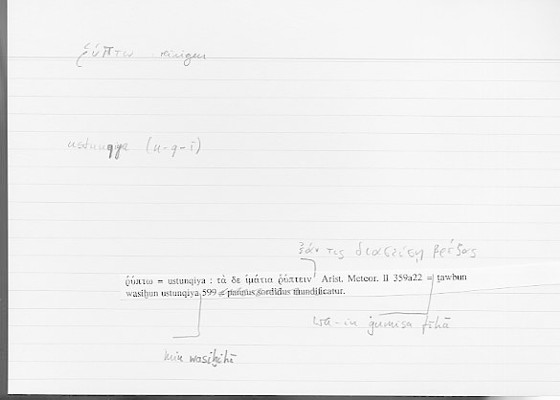 ῥύπτω reinigen
ustunqiya (n-q-ī)
ἐάν τις διασείσῃ βρέξας
ῥύπτω = ustunqiya : τὰ δὲ ἱμάτια ῥύπτειν Arist. Meteor. II 359a22 = ṯawbun
wasiḫun ustunqiya 599 = pannus sordidus mundificatur.
wa-in ġumisa fīhā
min wasiḫihī